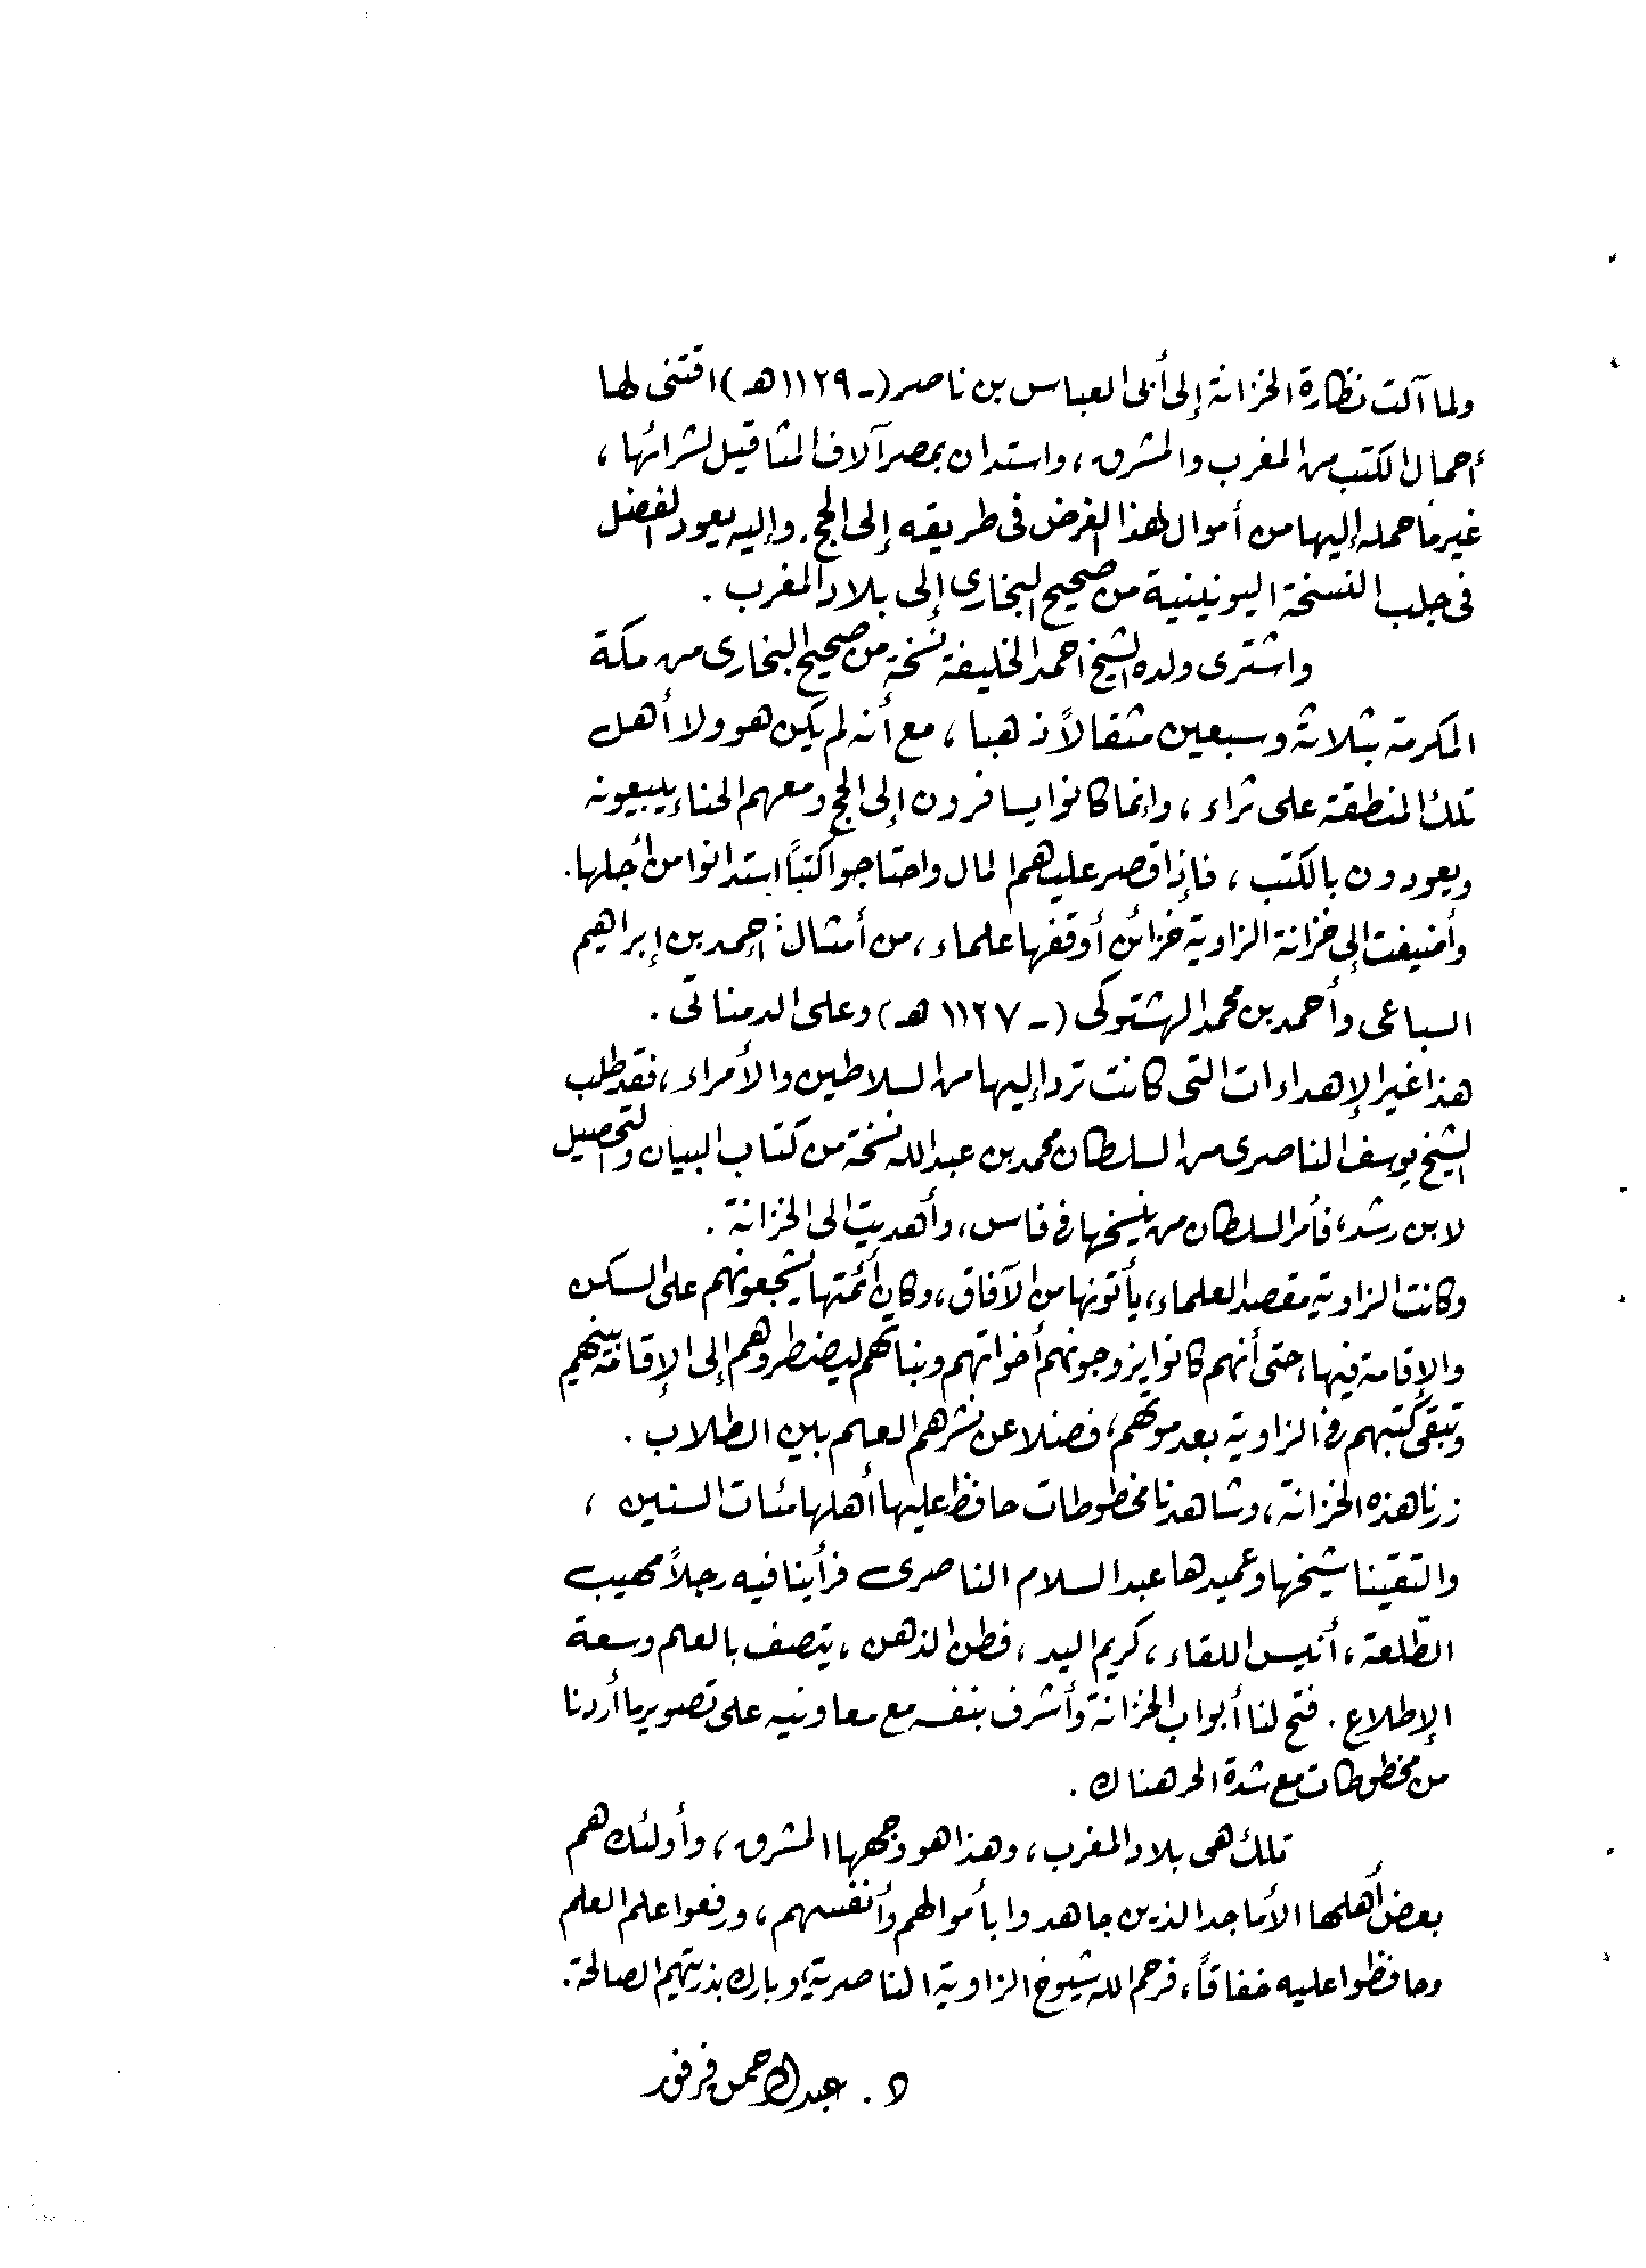 ولما آلت نظارة الخزانة إلى أبى العباس بن ناصر (ـ ١١٢٩هـ) اقتنى لها
أحمال الكتب من المغرب والمشرق، واستدان بمصر آلاف المثاقيل لشرائها،
غير ما حمله إليها من أموال لهذا الغرض فى طريقه إلى الحج. وإليه يعود الفضل
فى جلب النسخة اليونينية من صحيح البخاري إلى بلاد المغرب.
واشترى ولده الشيخ احمد الخليفة نسخة من صحيح البخارى من مكة
المكرمة بثلاثة وسبعين مثقالاً ذهبا، مع أنه لم يكن هو ولا أهل
تلك المنطقة على ثراء، وإنما كانوا يسافرون إلى الحج ومعهم الحناء يبيعونه
ويعودون بالكتب، فإذا قصر عليهم المال واحتاجوا كتباً استدانوا من أجلها.
وأضيفت إلى خزانة الزاوية خزائن أوقفها علماء، من أمثال: احمد بن إبراهيم
السباعى وأحمد بن محمد الهشتوكى (ـ ١١٢٧ هـ) وعلى الدمناتى.
هذا غير الإهداءات التى كانت ترد إليها من السلاطين والأمراء، فقد طلب
الشيخ يوسف الناصرى من السلطان محمد بن عبد الله نسخة من كتاب البيان والتحصيل
لابن رشد، فأمر السلطان من ينسخها فى فاس، وأهديت الى الخزانة.
وكانت الزاوية مقصد العلماء، يأتونها من الآفاق، وكان أئمتها يشجعونهم على السكن
والإقامة فيها، حتى أنهم كانوا يزوجونهم أخواتهم وبناتهم ليضطروهم إلى الإقامة بينهم
وتبقى كتبهم فى الزاوية بعد موتهم، فضلا عن نشرهم العلم بين الطلاب.
زرنا هذه الخزانة، وشاهدنا مخطوطات حافظ عليها أهلها مئات السنين،
والتقينا شيخها وعميدها عبد السلام الناصرى فرأينا فيه رجلاً مهيب
الطلعة، أنيس اللقاء، كريم اليد، فطن الذهن، يتصف بالعلم وسعة
الإطلاع. فتح لنا أبواب الخزانة وأشرف بنفسه مع معاونيه على تصوير ما أردنا
من مخطوطات مع شدة الحر هناك.
تلك هى بلاد المغرب، وهذا هو وجهها المشرق، وأولئك هم
بعض أهلها الأماجد الذين جاهدوا بأموالهم وأنفسهم، ورفعوا علم العلم
وحافظوا عليه خفاقاً، فرحم الله شيوخ الزاوية الناصرية، وبارك بذريتهم الصالحة.
د. عبد الرحمن فرفور